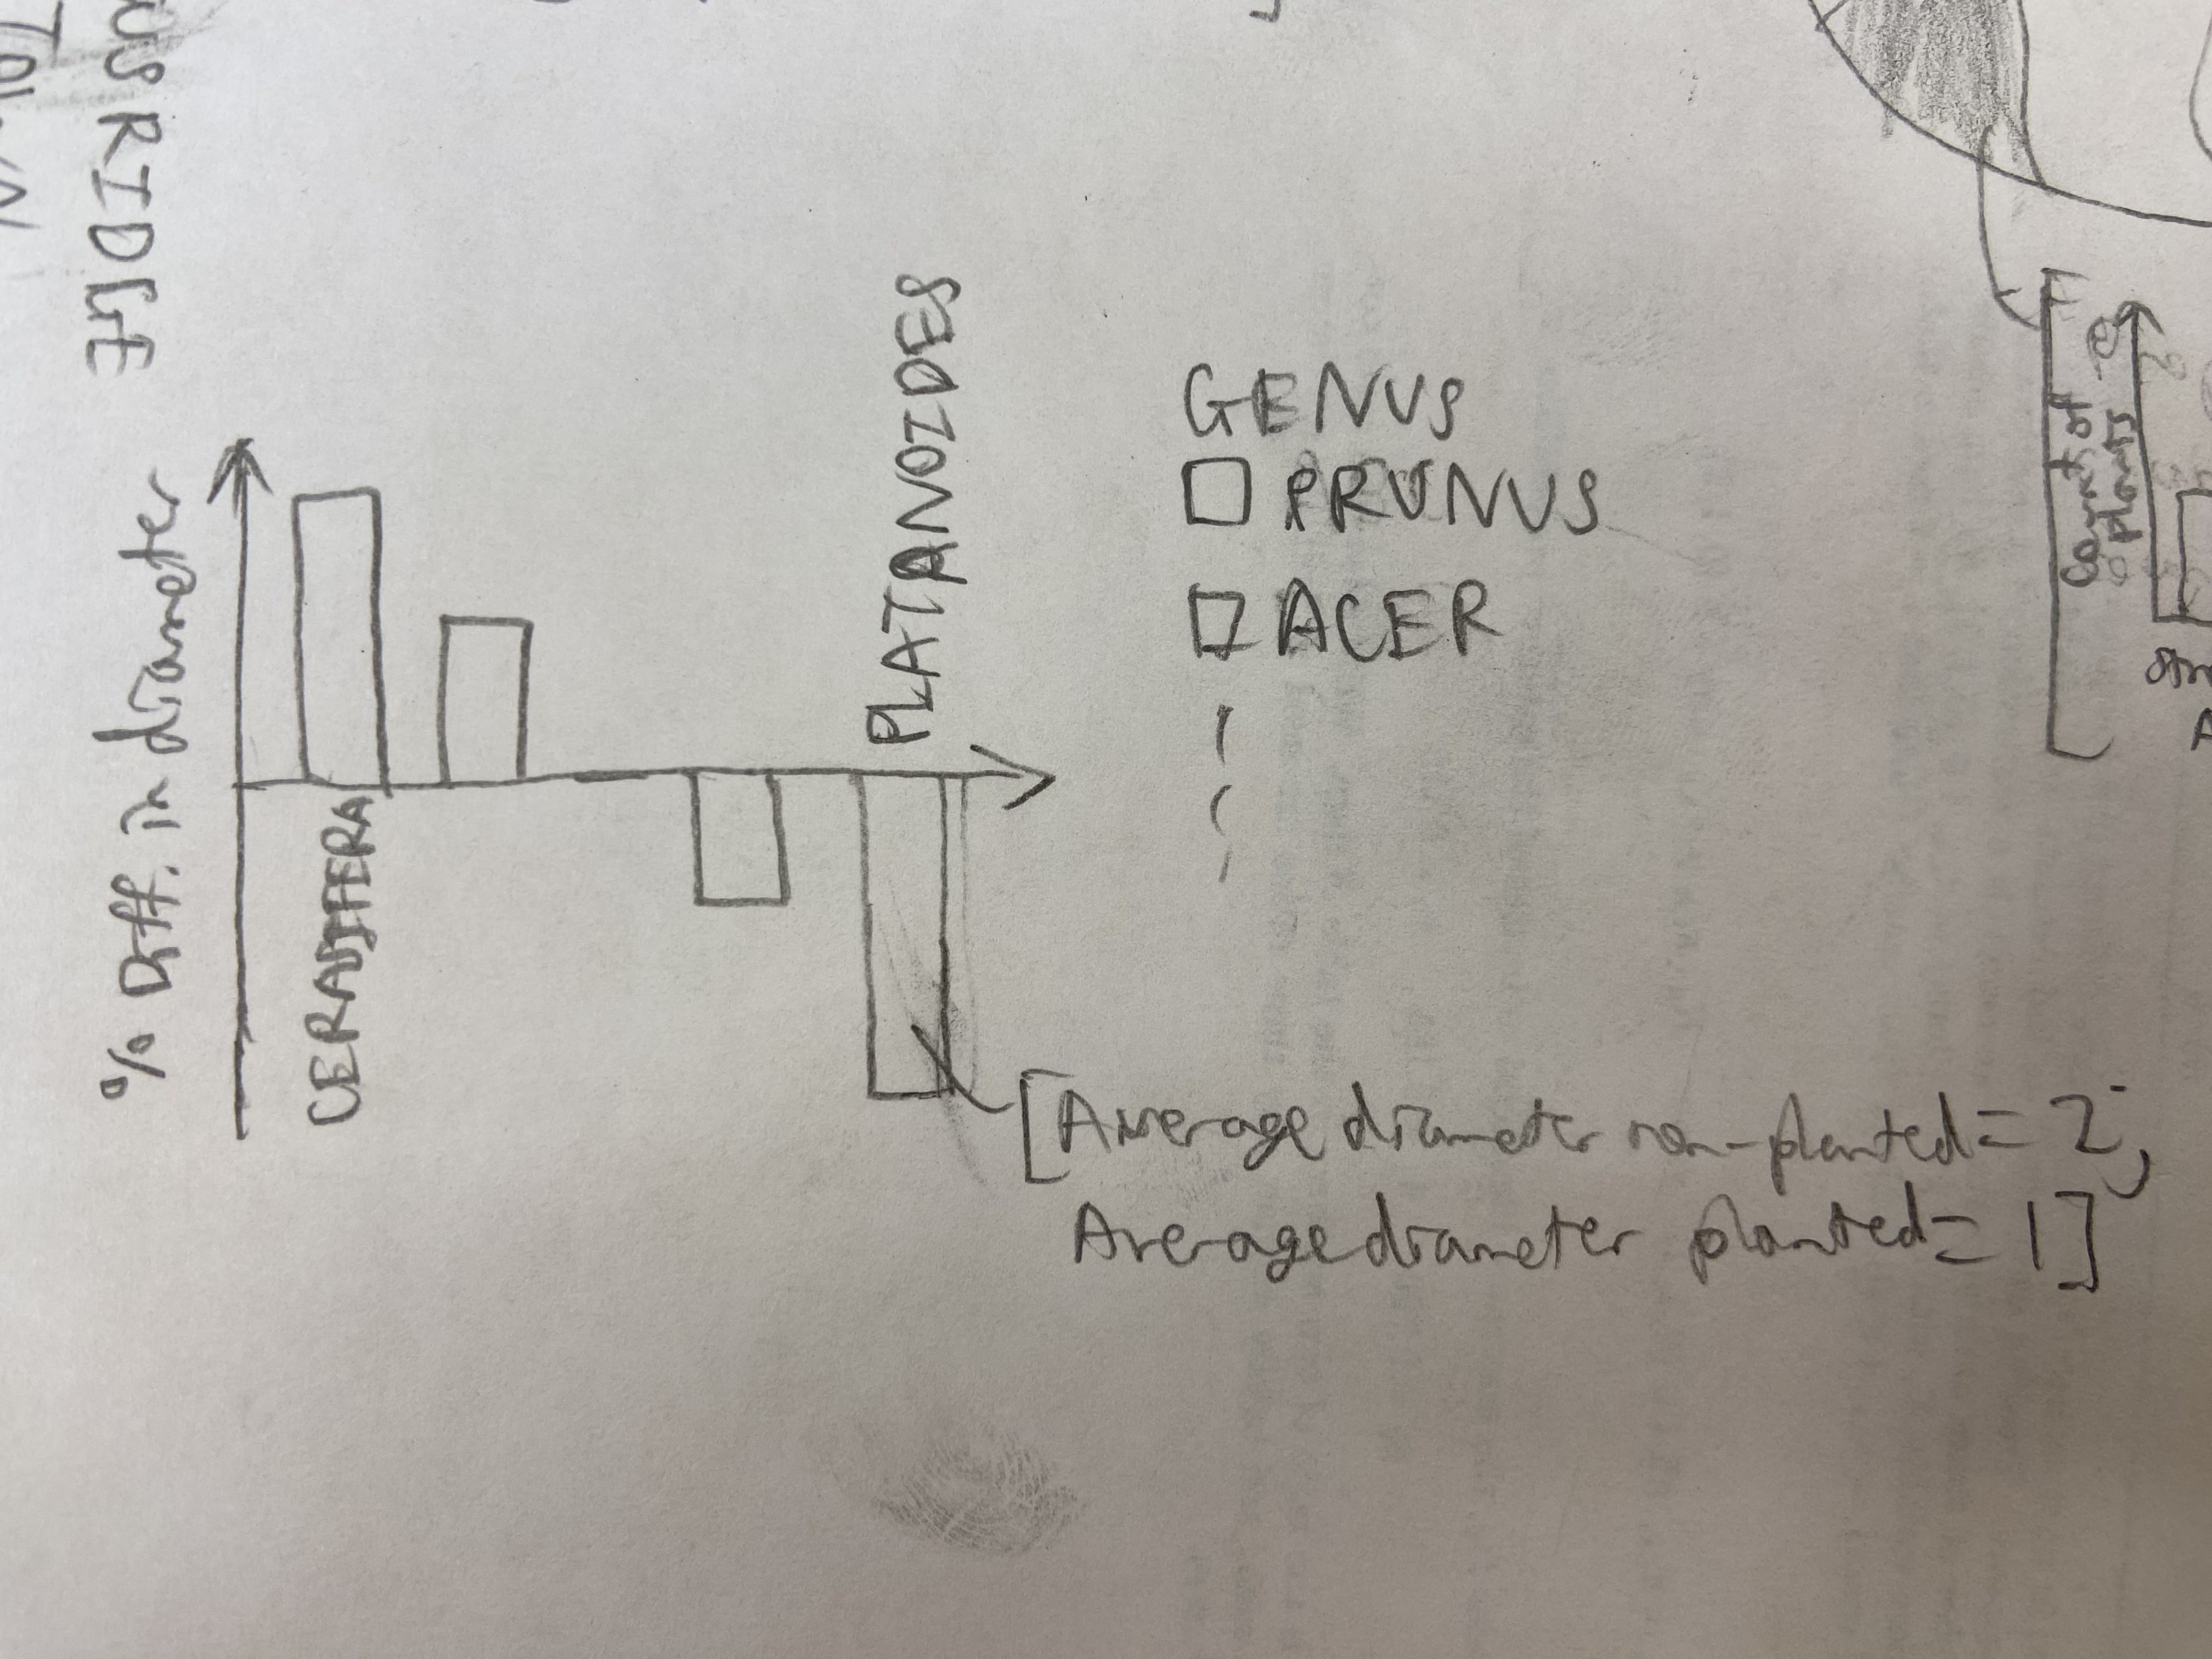 % Diff. in diameter
CERASIFERA
PLATANOIDES
GENUS
PRUNUS
ACER
[Average diameter non-planted = 2;
Average diameter planted = 1]
Count of
plants